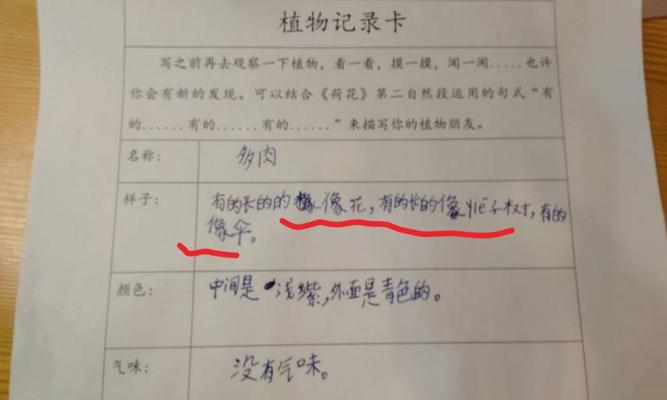 植物记录卡
写之前再去观察一下植物，看一看，摸一摸，闻一闻.....也许
你会有新的发现。可以结合《荷花》第二自然段运用的句式“有
的......有的......有的......”来描写你的植物朋友。
名称： 多肉
样子： 有的长的的像花，有的长的像yiē子树，有的
像伞。
颜色： 中间是浅紫，外面是青色的。
气味： 没有气味。